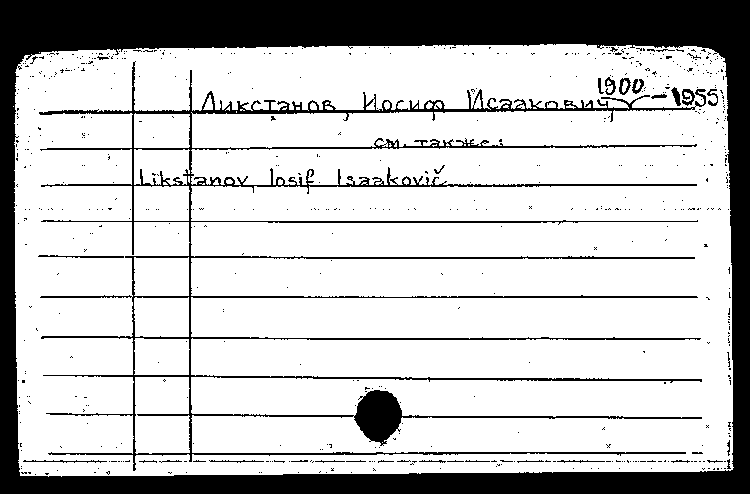 Ликстанов, Иосиф Исаакович, 1900 – 1955
см. также:
Likstanov, Iosif Isaakovič